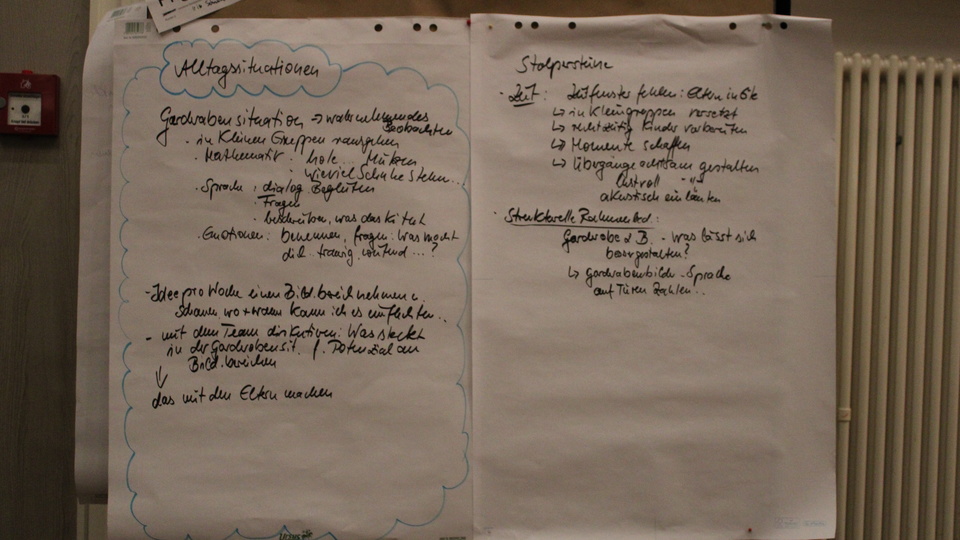 Alltagssituationen
Garderobensituation → wahrnehmendes
Beobachten
· in kleinen Gruppen rausgehen
· Mathematik: hole ... Mützen
· wieviel Schuhe stehn...
· Sprache: dialog Begleiten
· Fragen
· beschreiben, was das Ki tut
· Emotionen: benennen, fragen: was macht
dich traurig, wütend ...?
- Idee pro Woche einen Bild.bereich nehmen u.
schauen, wo + wann kann ich es einflechten..
- mit dem Team diskutieren: Was steckt
in der Garderobensit. f. Potenzial an
Bild.bereichen
↓
das mit den Eltern machen
Stolpersteine
· Zeit: Zeitfenster fehlen: Eltern in
↳ in Kleingruppen versetzt
↳ rechtzeitig Kinder vorbereiten
↳ Momente schaffen
↳ Übergänge achtsam gestalten
lustvoll -"-
akustisch einläuten
· Strukturelle Rahmenbed.:
Garderobe z B. - was lässt sich
besser gestalten?
↳ Garderobenbilder - Sprache
auf Türen Zahlen..